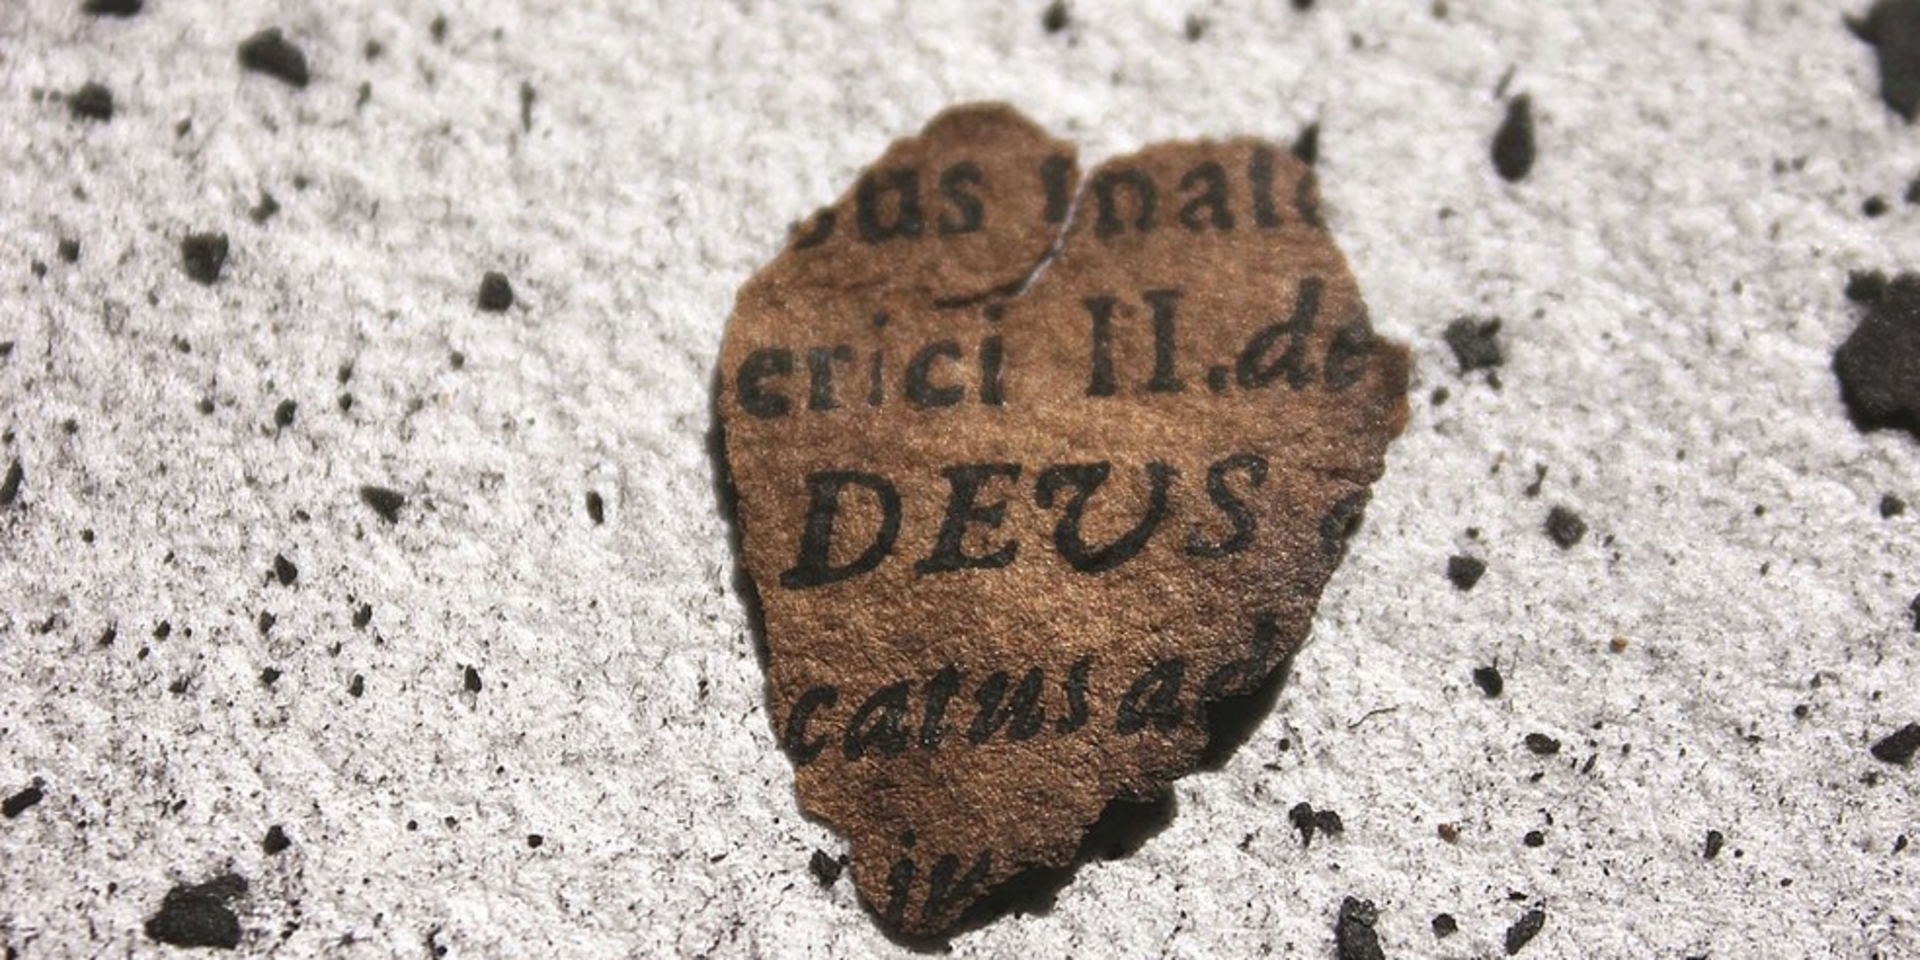 us inal
erici II.de
DEUS
catus ad
in